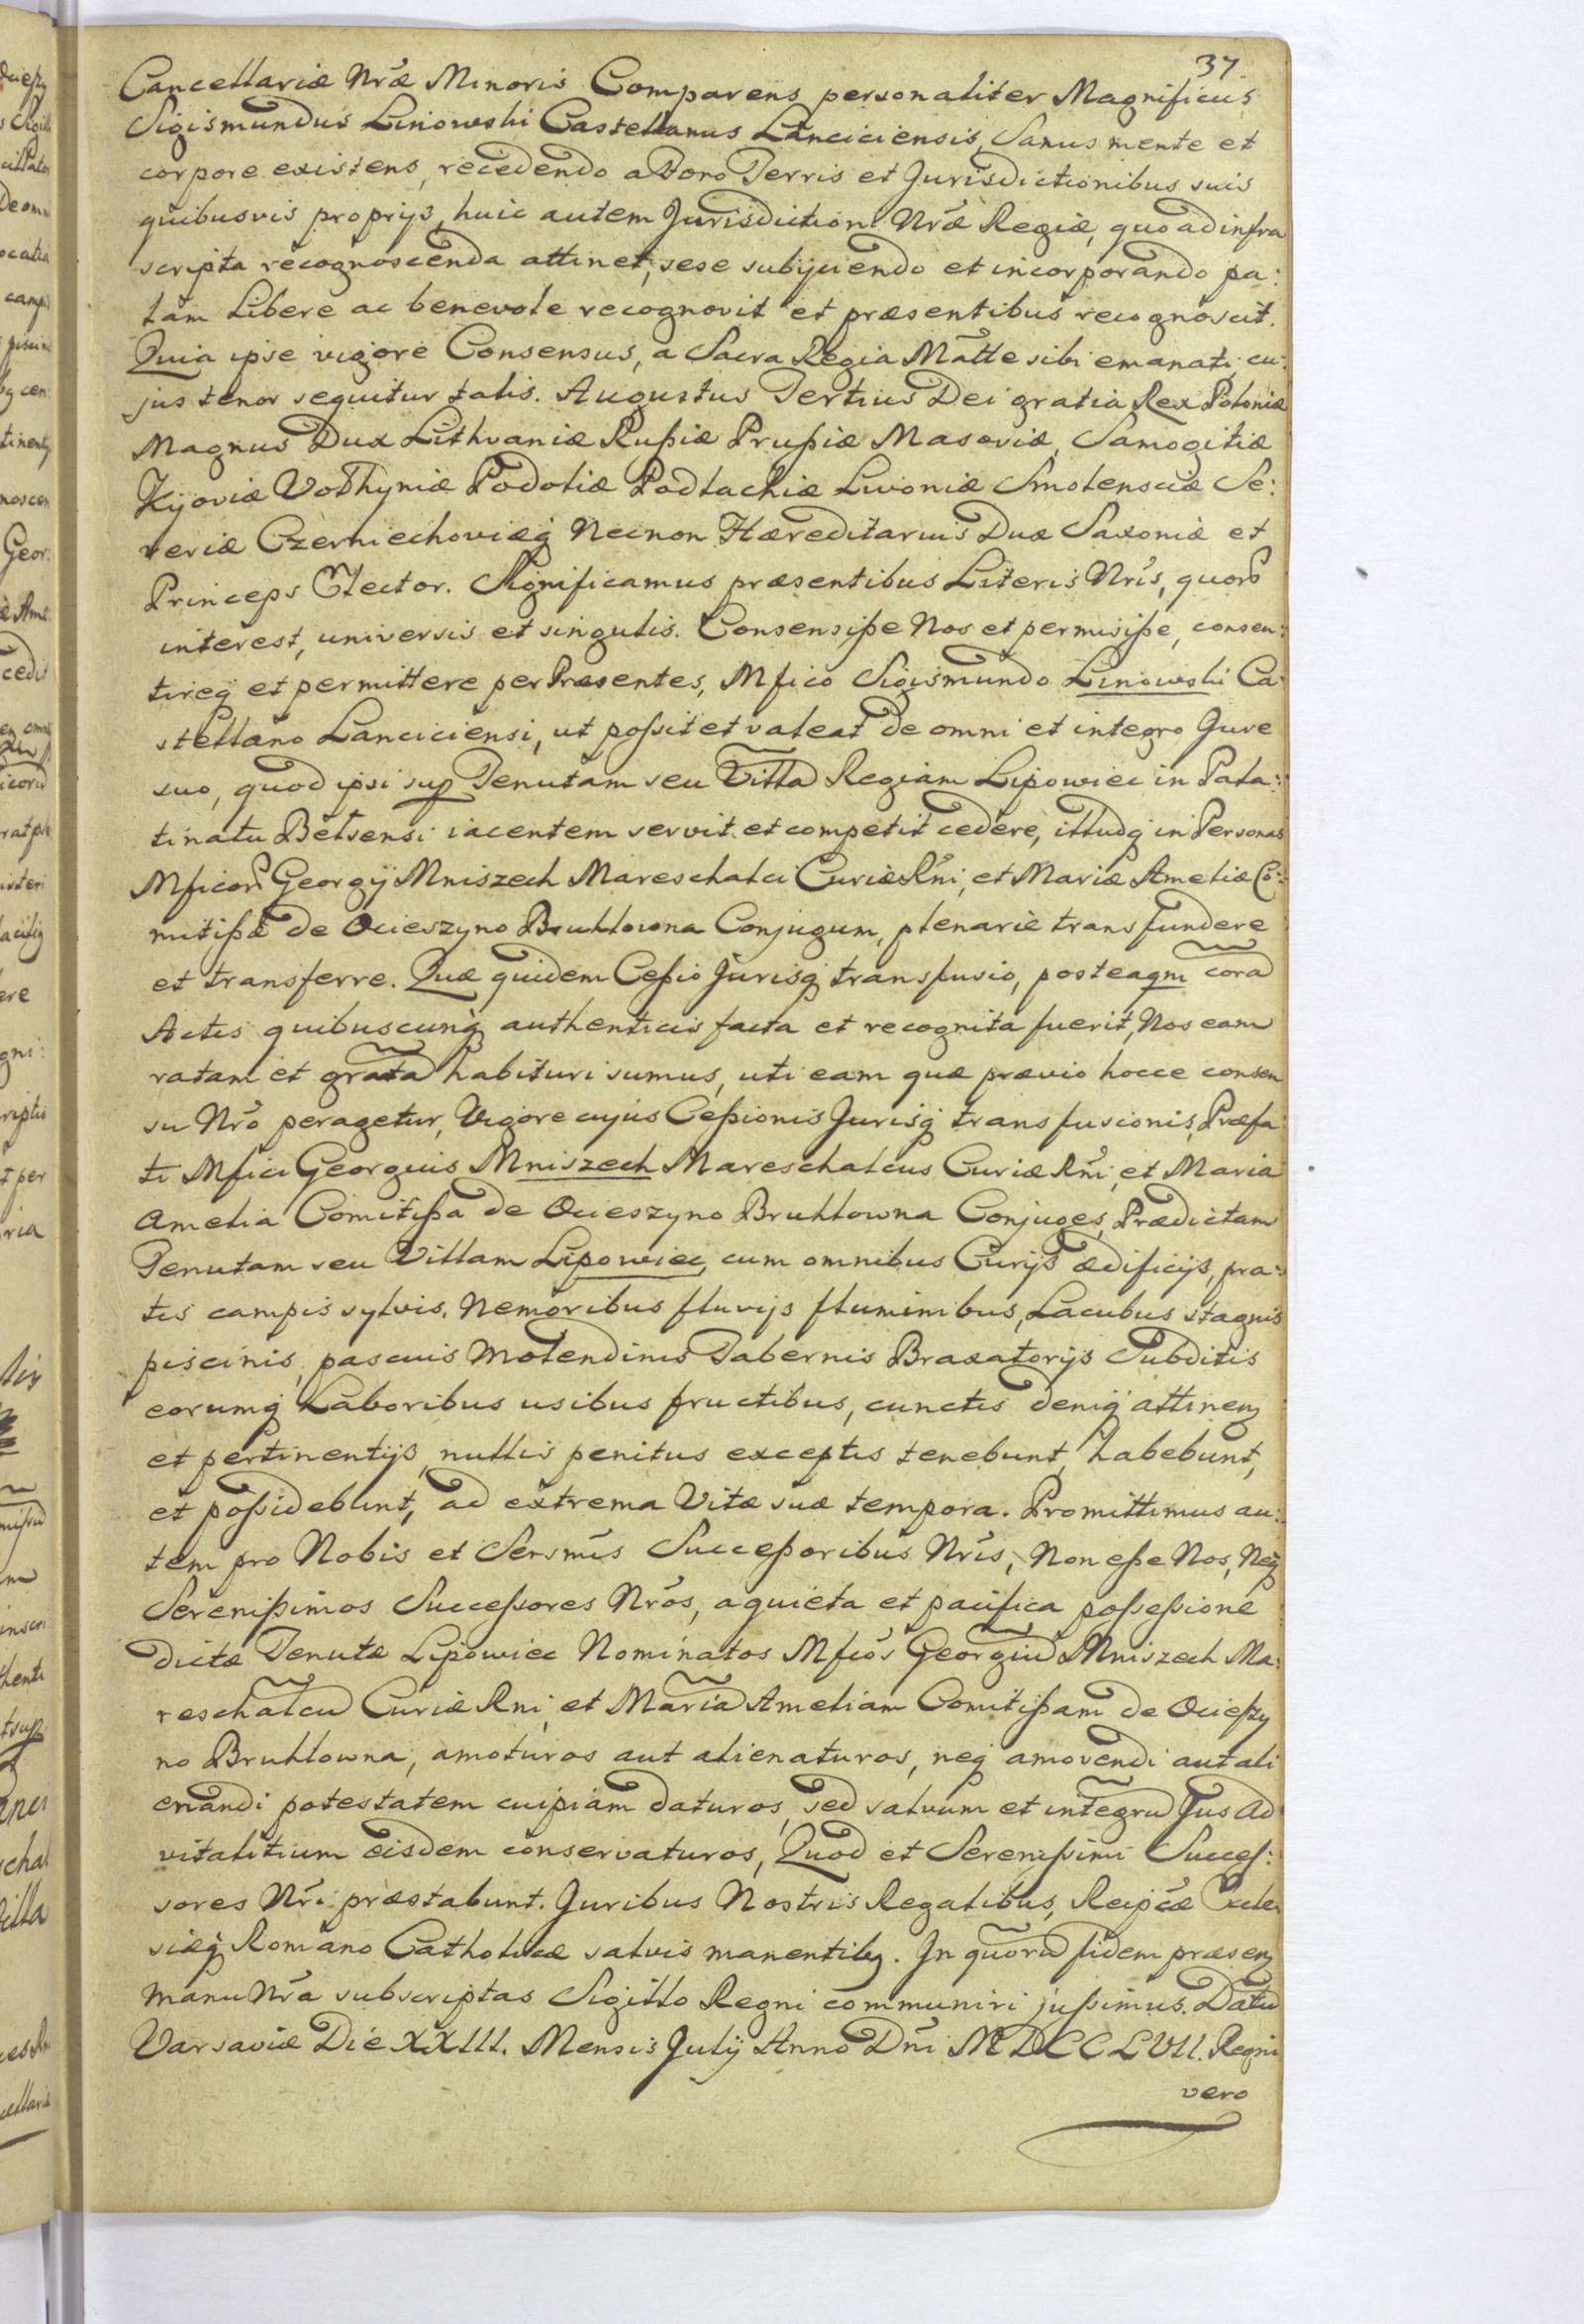 37.
Cancellariæ Nræ Minoris Comparens personaliter Magnificus
Sigismundus Linowski Castellanus Lanciciensis, Sanus mente et
corpore existens, recedendo a Foro Terris et Jurisdictionibus suis
quibusvis proprijs, huic autem Jurisdictioni Nræ Regiæ, quo ad infra
scripta recognoscenda attinet, sese subijciendo et incorporando pa:
lam Libere ac benevole recognovit et præsentibus recognoscit.
Quia ipse vigore Consensus, a Sacra Regia Mãtte sibi emanati, cu:
jus tenor sequitur talis. Augustus Tertius Dei gratia Rex Poloniæ
Magnus Dux Lithvaniæ Rußiæ Prußiæ Masoviæ, Samogitiæ
Kijoviæ Volhyniæ Podoliæ Podlachiæ Livoniæ Smolensciæ Se:
veriæ Czerniechoviæq̃ Necnon Hæreditarius Dux Saxoniæ et
Princeps Elector. Significamus præsentibus Literis Nris, quorũ
interest, universis et singulis. Consensiße Nos et permisiße, consen:
tireq̃ et permittere per Præsentes, Mfico Sigismundo Linowski Ca:
stellano Lanciciensi, ut poßit et valeat de omni et integro Jure
suo, quod ipsi sup Tenutam seu Villã Regiam Lipowiec in Pala:
tinatu Belsensi iacentem servit et competit cedere, illudq̃ in Personas
Mficorũ Georgij Mniszech Mareschalci Curiæ Rñi, et Mariæ Ameliæ Cõ:
mitißæ de Ocieszyno Bruhlowna Conjugum, plenarie transfundere
et transferre. Quæ quidem Ceßio Jurisq̃ transfusio, posteaqm corã
Actis quibuscunq̃ authenticis facta et recognita fuerit, Nos eam
ratam et gratã habituri sumus, uti eam quæ prævio hocce consen
su Nro peragetur, Vigore cujus Ceßionis Jurisq̃ transfusionis, Præfa
ti Mfici Georgius Mniszech Mareschalcus Curiæ Rñi, et Maria
Amelia Comitißa de Ocieszyno Bruhlowna Conjuges, Prædictam
Tenutam seu Villam Lipowiec, cum omnibus Curijs ædificijs, pra:
tis campis sylvis. Nemoribus fluvijs fluminibus, Lacubus stagnis
piscinis, pascuis Molendinis Tabernis Braxatorijs Subditis
eorumq̃ Laboribus usibus fructibus, cunctis deniq̃ attinen
et pertinentijs, nullis penitus exceptis tenebunt, habebunt,
et poßidebunt, ad extrema Vitæ suæ tempora. Promittimus au:
tem pro Nobis et Sersmis Succeßoribus Nris, Non eße Nos, Neq̃
Serenißimos Succeßores Nros, a quieta et pacifica poßeßione
dictæ Tenutæ Lipowiec Nominatos Mficos Georgiũ Mniszech Ma:
reschalcũ Curiæ Rni, et Mariã Ameliam Comitißam de Ocießzy
no Bruhlowna, amoturos aut alienaturos, neq̃ amovendi aut ali
enandi potestatem cuipiam daturos, sed salvum et integrũ Jus ad
vitalitium eisdem conservaturos, Quod et Serenißimi Succeß:
sores Nri præstabunt. Juribus Nostris Regalibus, Reipcæ Eccle
siæq̃ Romano Catholicæ salvis manentibg. In quorũ fidem præsen
Manu Nra subscriptas Sigillo Regni communiri jußimus. Datũ
Varsaviæ Die XXIII. Mensis Julij Anno Dñi MDCCLVII. Regni
vero